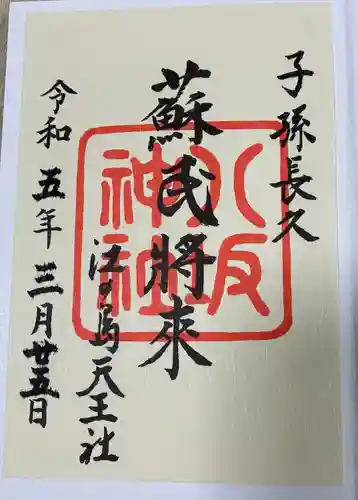 子孫長久
蘇民將來
江の島天王社
令和五年三月廿五日
八坂神社